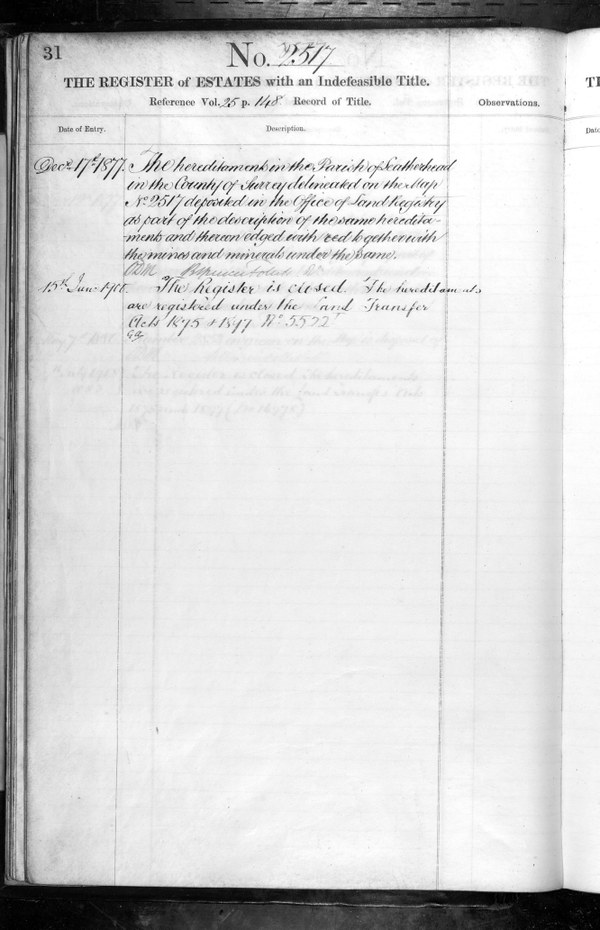 31
No. 2517
THE REGISTER of ESTATES with an Indefeasible Title.
Reference Vol. 25 p. 148 Record of Title.
Observations.
Date of Entry.
Description.
Decr. 17th 1877. The hereditaments in the Parish of Leatherhead
in the County of Surrey delineated on the Map
No 2517 deposited in the Office of Land Registry
as part of the description of the same heredita-
ments and thereon edged with red together with
the mines and minerals under the same.
15th The Register is closed. The hereditaments
are registered under the Land Transfer
Acts 1875 & 1897 No 5522